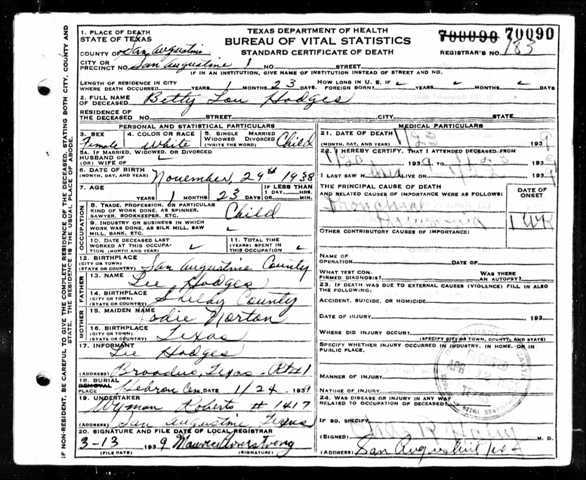 TEXAS DEPARTMENT OF HEALTH
BUREAU OF VITAL STATISTICS
STANDARD CERTIFICATE OF DEATH
700090 70090
REGISTRAR'S NO. 185
1. PLACE OF DEATH
STATE OF TEXAS
COUNTY OF San Augustine
CITY OR PRECINCT NO. San Augustine 1 NO. STREET
IF IN AN INSTITUTION, GIVE NAME OF INSTITUTION INSTEAD OF STREET AND NO.
LENGTH OF RESIDENCE IN CITY WHERE DEATH OCCURRED 1 23 HOW LONG IN U. S. IF FOREIGN BORN?
2. FULL NAME OF DECEASED Betty Lou Hodges
RESIDENCE OF THE DECEASED NO. STREET CITY STATE
PERSONAL AND STATISTICAL PARTICULARS
3. SEX Female
4. COLOR OR RACE White
5. SINGLE MARRIED WIDOWED DIVORCED (WRITE THE WORD) Child
5A. IF MARRIED, WIDOWED, OR DIVORCED
HUSBAND OF (OR) WIFE OF
6. DATE OF BIRTH (MONTH, DAY, AND YEAR) November 29th 1938
7. AGE YEARS 1 MONTHS 23 DAYS IF LESS THAN 1 DAY HRS. MIN.
OCCUPATION
8. TRADE, PROFESSION, OR PARTICULAR KIND OF WORK DONE, AS SPINNER, SAWYER, BOOKKEEPER, ETC. Child
9. INDUSTRY OR BUSINESS IN WHICH WORK WAS DONE, AS SILK MILL, SAW MILL, BANK, ETC.
10. DATE DECEASED LAST WORKED AT THIS OCCUPATION (MONTH AND YEAR)
11. TOTAL TIME (YEARS) SPENT IN THIS OCCUPATION
12. BIRTHPLACE (CITY OR TOWN) (STATE OR COUNTRY) San Augustine County
FATHER
13. NAME Lee Hodges
14. BIRTHPLACE (CITY OR TOWN) (STATE OR COUNTRY) Shelby County
MOTHER
15. MAIDEN NAME Norton
16. BIRTHPLACE (CITY OR TOWN) (STATE OR COUNTRY) Texas
17. INFORMANT Lee Hodges
ADDRESS Broaddus, Texas Rt 1
18. BURIAL REMOVAL
PLACE Hebron Cem. 1/24 1939
19. UNDERTAKER Wyman Roberts # 1417
ADDRESS San Augustine, Texas
20. SIGNATURE AND FILE DATE OF LOCAL REGISTRAR
3-13 1939 Maurice Armstrong
(FILE DATE) (SIGNATURE)
MEDICAL PARTICULARS
21. DATE OF DEATH (MONTH, DAY, AND YEAR) 193
22. I HEREBY CERTIFY, THAT I ATTENDED DECEASED FROM
I LAST SAW H ALIVE ON 193
THE PRINCIPAL CAUSE OF DEATH AND RELATED CAUSES OF IMPORTANCE WERE AS FOLLOWS:
DATE OF ONSET
Bronchial Pneumonia
OTHER CONTRIBUTORY CAUSES OF IMPORTANCE:
NAME OF OPERATION DATE OF
WHAT TEST CONFIRMED DIAGNOSIS? WAS THERE AN AUTOPSY?
23. IF DEATH WAS DUE TO EXTERNAL CAUSES (VIOLENCE) FILL IN ALSO THE FOLLOWING:
ACCIDENT, SUICIDE, OR HOMICIDE?
DATE OF INJURY 193
WHERE DID INJURY OCCUR?
(SPECIFY CITY OR TOWN, COUNTY, AND STATE)
SPECIFY WHETHER INJURY OCCURRED IN INDUSTRY, IN HOME, OR IN PUBLIC PLACE.
MANNER OF INJURY
NATURE OF INJURY
24. WAS DISEASE OR INJURY IN ANY WAY RELATED TO OCCUPATION OF DECEASED?
IF SO, SPECIFY
(SIGNED) M. D.
ADDRESS San Augustine